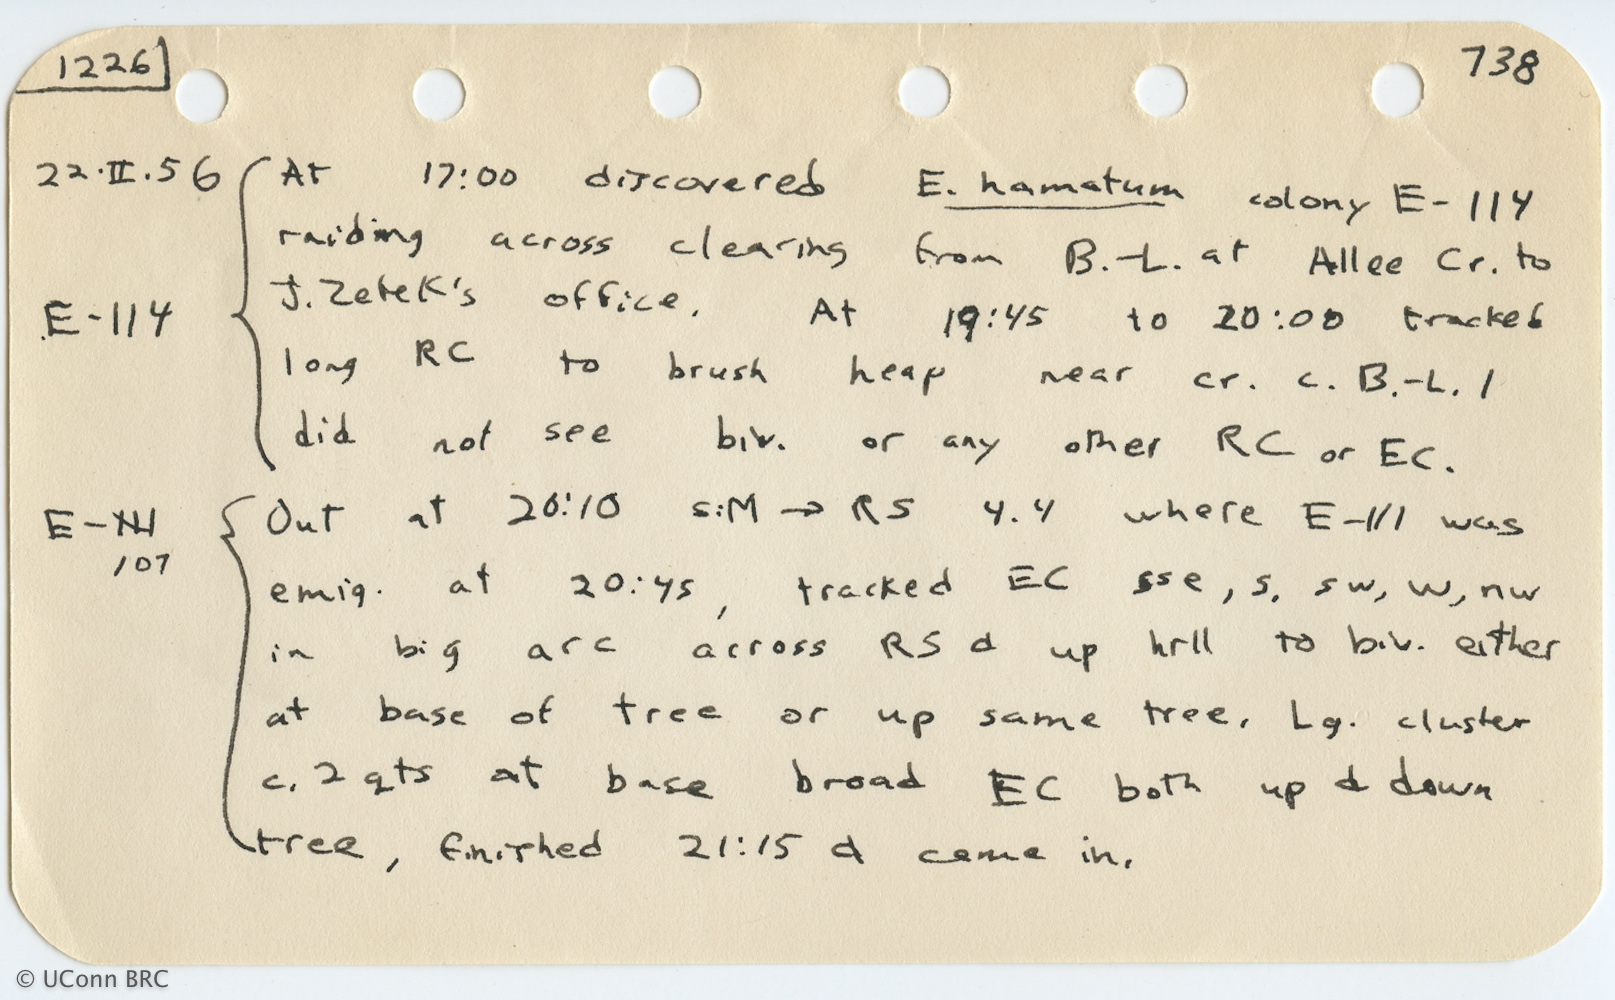 1226
738
22.II.56 At 17:00 discovered E. hamatum colony E-114
raiding across clearing from B.-L. at Allee Cr. to
J. Zetek's office. At 19:45 to 20:00 tracked
E-114
long RC to brush heap near cr. c. B.-L. 1
did not see biv. or any other RC or EC.
E-111 Out at 20:10 → RS 4.4 where E-111 was
107
emig. at 20:45, tracked EC sse, s, sw, w, nw
in big arc across RS & up hill to biv. either
at base of tree or up same tree. Lg. cluster
c. 2 qts at base broad EC both up & down
tree, finished 21:15 & came in.
© UConn BRC